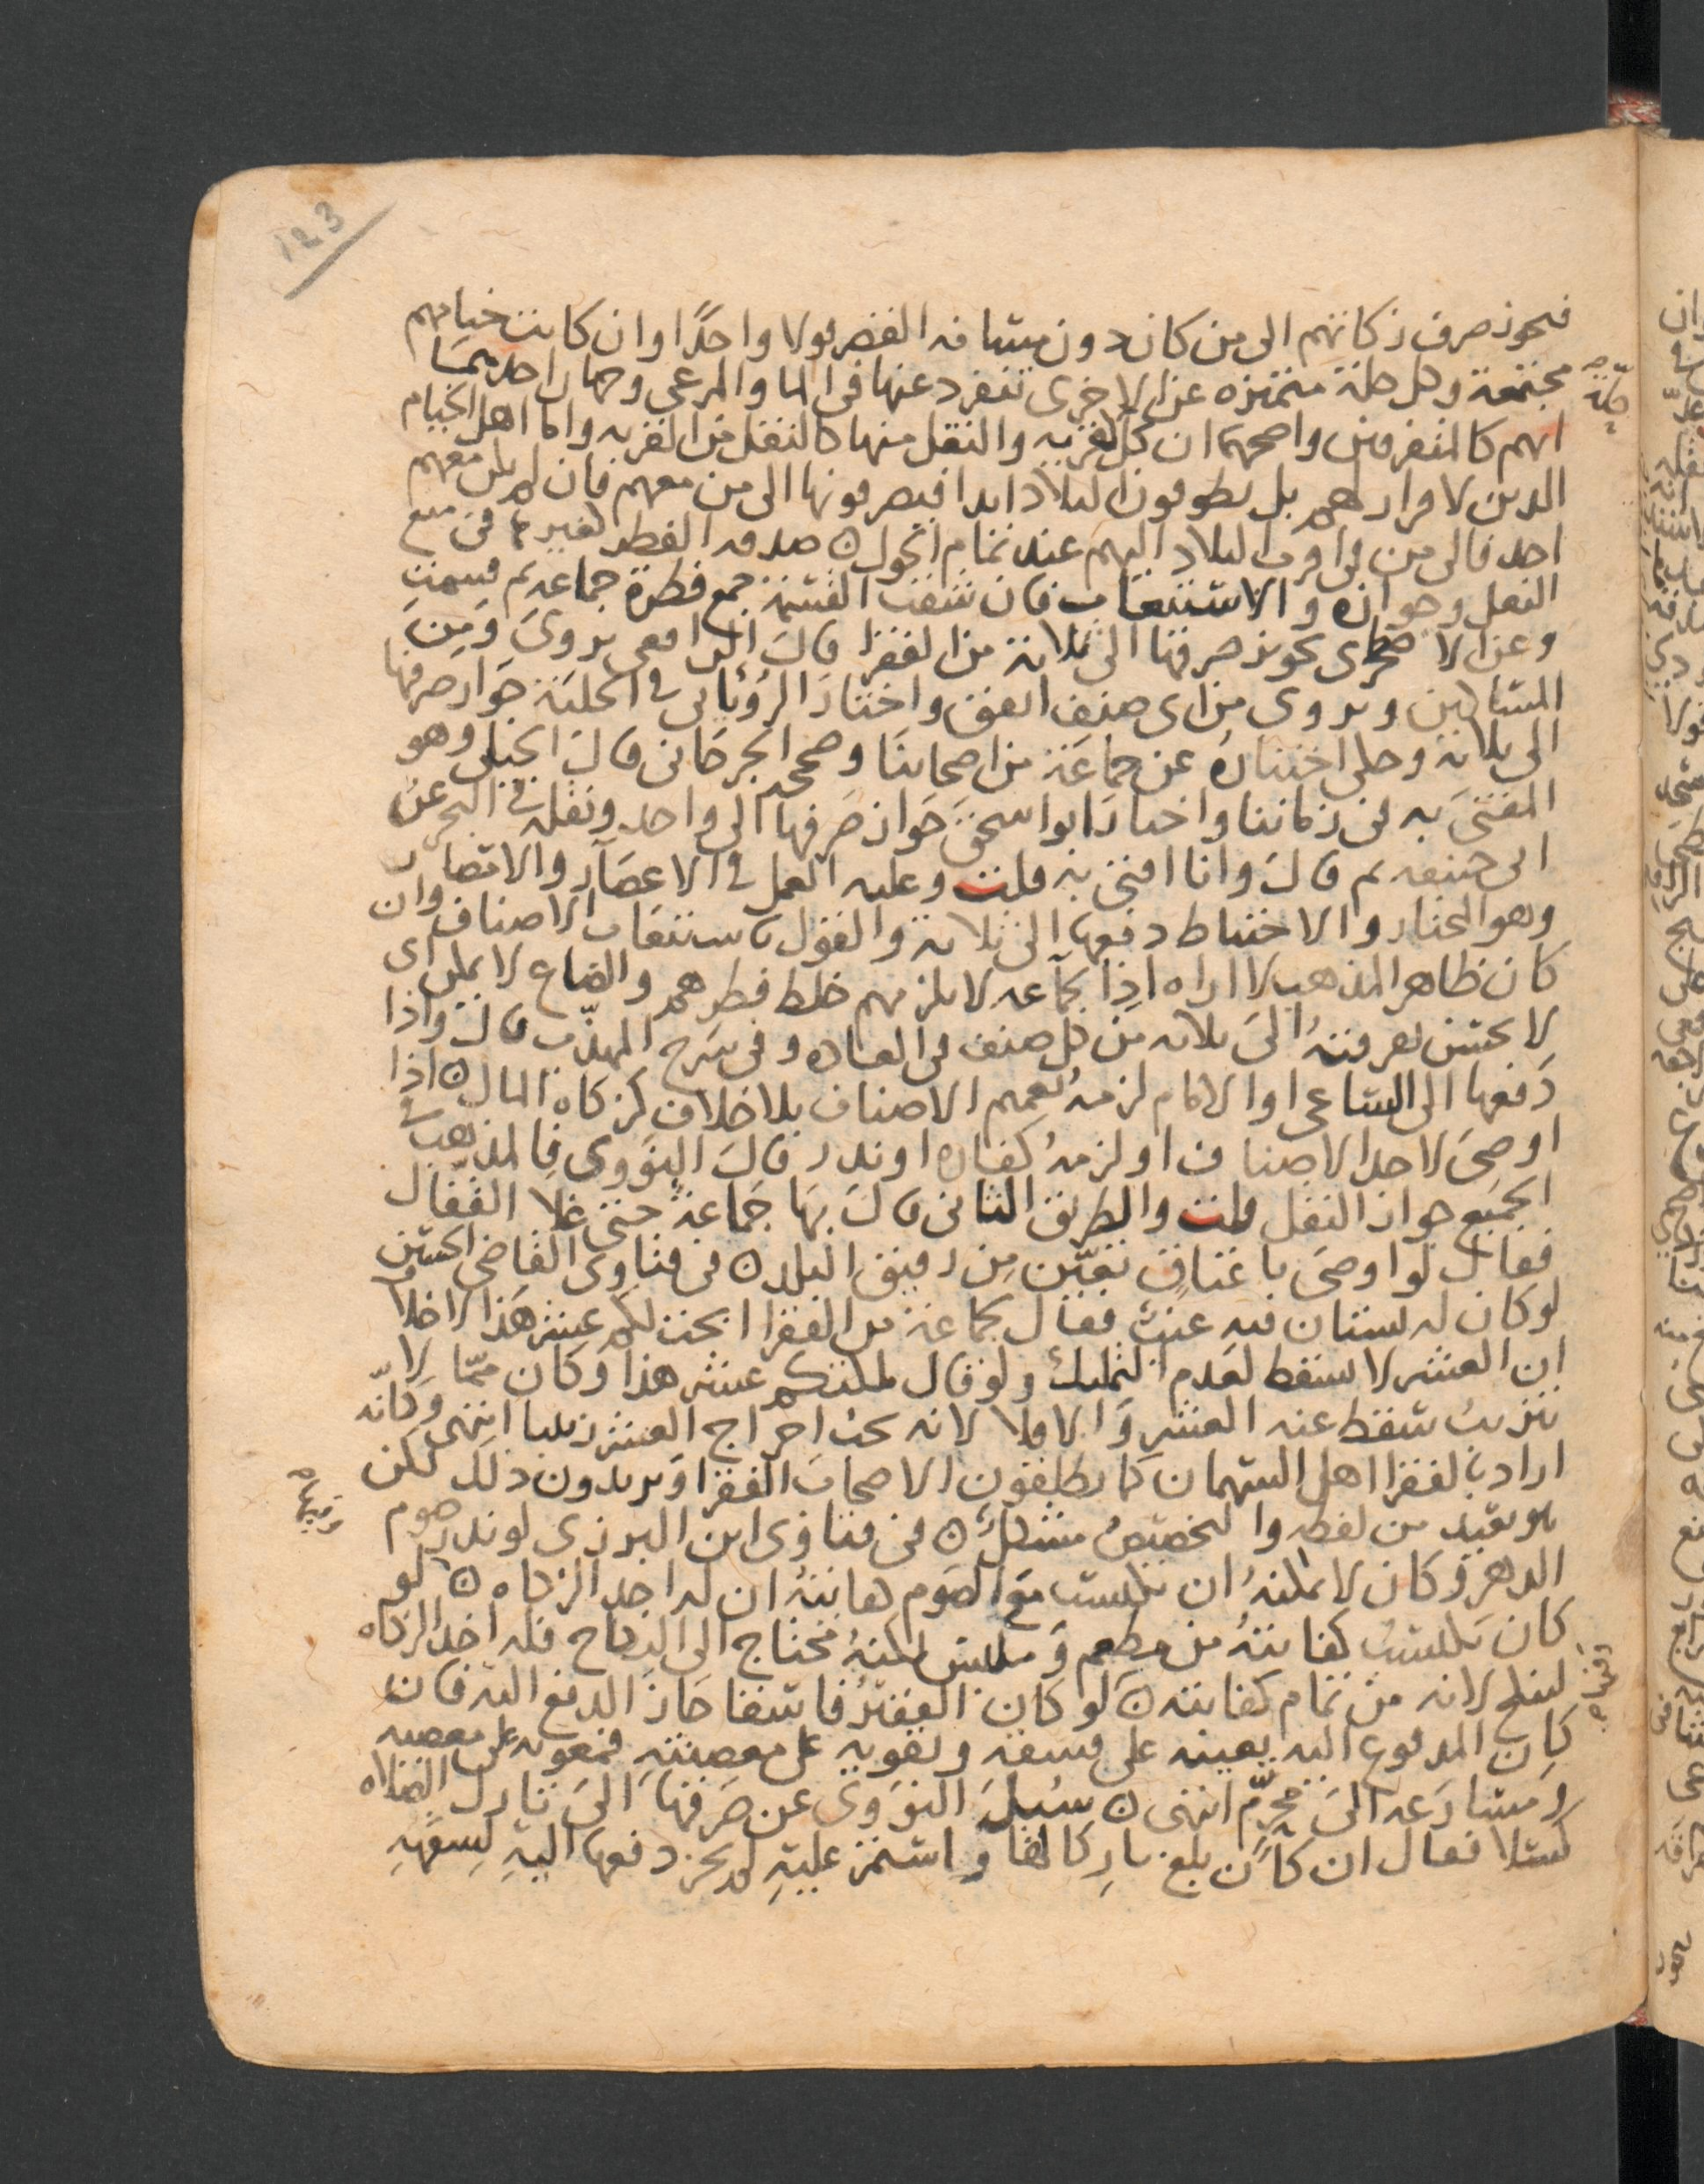 123
فيجوز صرف زكاتهم الى من كان دون مسافه القصر قولا واحدًا وان كانت خيامهم
مجتمعة وكل حلة متميزه عن الاخرى تنفرد عنها فى الما والمرعى وجهان احدهما
حلة
انهم كالمتفرقين واصحهما ان كل كالقريه والنقل منها كالنقل من القريه واما اهل الخيام
الدين لا قرار لهم بل يطوفون البلاد ابدا فيصرفونها الى من معهم فان لم يكن معهم
احد فالى من فى اقرب البلاد اليهم عند تمام الحول ه صدقه الفطر كغيرها فى منع
النقل وجوازه والاستيعاب فان شقت القسمة جمع جماعه فطرة ثم قسمت
وعن الاصطخرى يجوز صرفها الى ثلاثة من الفقرا قال الرافعى يروى ومن
المساكين ويروى من اى صنف اتفق واختار الرويانى فى الحلية جواز صرفها
الى ثلاثة وحكى اختياره عن جماعة من اصحابنا وصححه الجرجانى قال الجيلى وهو
المفتى به فى زماننا واختار ابو اسحق جواز صرفها الى واحد ونقله فى البحر عن
ابى حنيفه ثم قال وانا افتى به قلت وعليه العمل فى الاعصار والامصار
وهو المختار والاحتياط دفعها الى ثلاثة والقول باستيعاب الاصناف وان
كان ظاهر المذهب لا اراه اذ الجماعه لا يلزمهم خلط فطرهم والصاع لا يمكن اى
لا يحسن تفرقته الى ثلاثه من كل صنف فى العاده وفى شرح المهذب قال واذا
دفعها الى الساعى او الامام لزمه تعميم الاصناف بلا خلاف كزكاه المال ه اذا
اوصى لاحد الاصناف او لزمه كفاره او نذر قال النووى فالمذهب فى
الجميع جواز النقل قلت والطريق الثانى قال بها جماعة حتى غلا القفال
فقال لو اوصى باعتاق تعين من رقيق البلد ه فى فتاوى القاضى الحسين
لو كان له بستان فيه عنب فقال لجماعة من الفقرا ابحت لكم عشر هذا لا خلاف
ان العشر لا يسقط لعدم التمليك ولو قال ملكتكم عشر هذا وكان مما لا
يتزبب سقط عنه العشر والا فلا لانه يجب اخراج العشر زبيبا انتهى وكانه
اراد بالفقرا اهل السهمان كما يطلقون الاصحاب الفقرا ويريدون ذلك لكن
هو بعيد من لفظه والتخصيص مشكل ه فى فتاوى ابن البزرى لو نذر صوم
الدهر وكان لا يمكنه ان يكتسب مع الصوم كفايته ان له اخذ الزكاه ه لو
كان يكتسب كفايته من مطعم وملبس لكنه محتاج الى النكاح فله اخذ الزكاه
لينكح لانه من تمام كفايته ه لو كان الفقير فاسقا جاز الدفع اليه فان
كان المدفوع اليه يعينه على فسقه وتقويه على معصيته فمعونه على معصيه
ومسارعه الى محرم انتهى ه سيل النووى عن صرفها الى تارك الصلاه
كسلا فقال ان كان بلغ تاركا لها واستمر عليه لم يجز دفعها اليه لسفهه